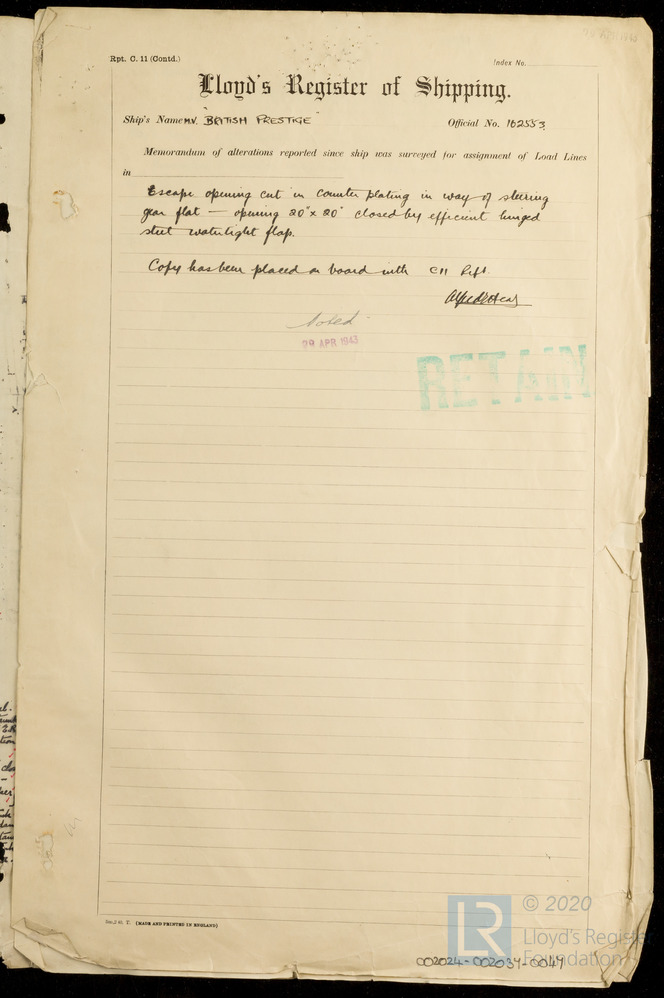 Rpt. C. 11 (Contd.)
Index No.
Lloyd's Register of Shipping.
Ship's Name M.V. "BRITISH PRESTIGE" Official No. 162553.
Memorandum of alterations reported since ship was surveyed for assignment of Load Lines
in
Escape opening cut in counter plating in way of steering
gear flat — opening 20" x 20" closed by efficient hinged
steel watertight flap.
Copy has been placed on board with C11 Rept.
Noted
29 APR 1943
RETAIN
(MADE AND PRINTED IN ENGLAND)
© 2020
LR
Lloyd's Register
Foundation
002024-002034-0049